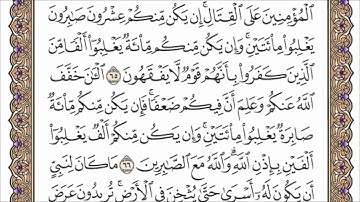 ٱلْمُؤْمِنِينَ عَلَى ٱلْقِتَالِ ۚ إِن يَكُن مِّنكُمْ عِشْرُونَ صَـٰبِرُونَ
يَغْلِبُوا۟ مِا۟ئَتَيْنِ ۚ وَإِن يَكُن مِّنكُم مِّا۟ئَةٌ يَغْلِبُوٓا۟ أَلْفًا مِّنَ
ٱلَّذِينَ كَفَرُوا۟ بِأَنَّهُمْ قَوْمٌ لَّا يَفْقَهُونَ ٦٥ ٱلْـَٔـٰنَ خَفَّفَ
ٱللَّهُ عَنكُمْ وَعَلِمَ أَنَّ فِيكُمْ ضَعْفًا ۚ فَإِن يَكُن مِّنكُم مِّا۟ئَةٌ
صَابِرَةٌ يَغْلِبُوا۟ مِا۟ئَتَيْنِ ۚ وَإِن يَكُن مِّنكُمْ أَلْفٌ يَغْلِبُوٓا۟
أَلْفَيْنِ بِإِذْنِ ٱللَّهِ ۗ وَٱللَّهُ مَعَ ٱلصَّـٰبِرِينَ ٦٦ مَا كَانَ لِنَبِىٍّ
أَن يَكُونَ لَهُۥٓ أَسْرَىٰ حَتَّىٰ يُثْخِنَ فِى ٱلْأَرْضِ ۚ تُرِيدُونَ عَرَضَ